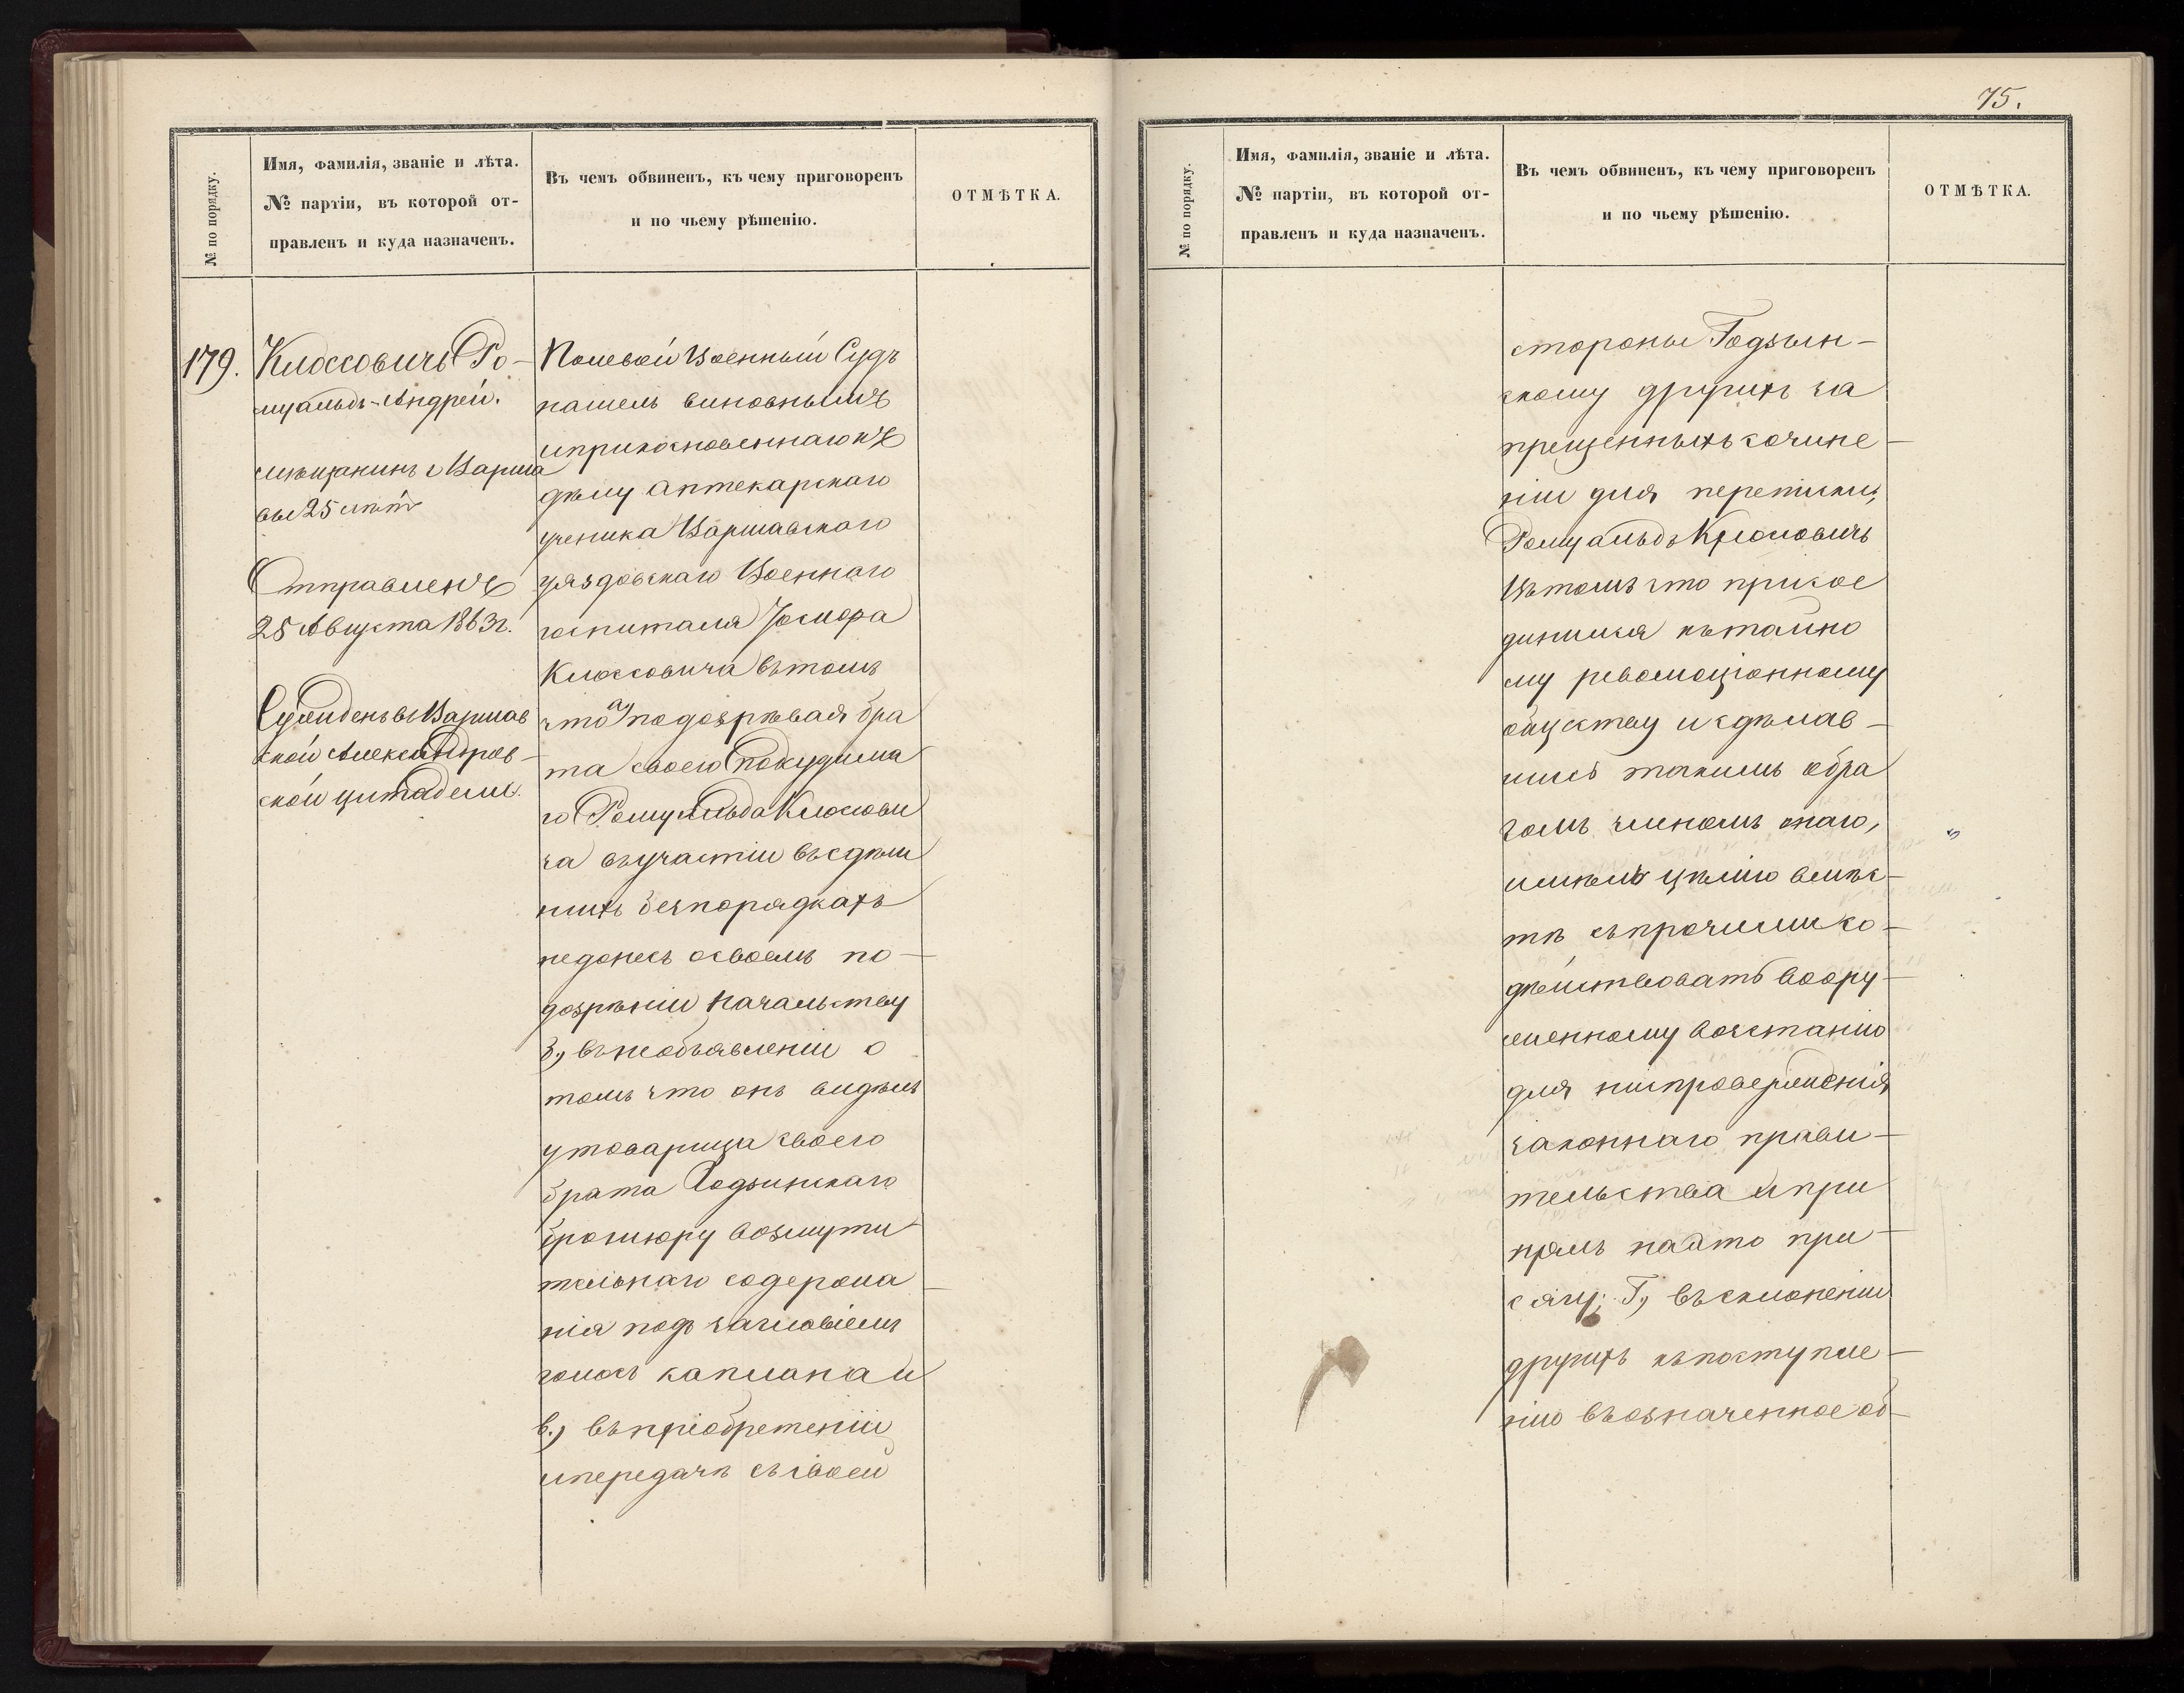 75.
№ по порядку.
Имя, фамилія, званіе и лѣта.
№ партіи, въ которой от-
правленъ и куда назначенъ.
Въ чемъ обвиненъ, къ чему приговоренъ
и по чьему рѣшенію.
ОТМѢТКА.
179.
Клоссовичъ Ро-
муальдъ-Андрей.
мѣщанинъ г Варша
вы 25 лѣтъ
Отправленъ
25 Августа 1863 г.
Сужденъ въ Варшав
ской Александров-
ской цитадели.
Полевой Военный Судъ
нашелъ виновнымъ
и прикосновеннаго къ
дѣлу аптекарскаго
ученика Варшавского
уяздовскаго Военнаго
госпиталя Іосифа
Клоссовича въ томъ
что а) подозрѣвая бра
та своего подсудима
го Ромуальда Клоссови
ча въ участіи въ сдѣлан
ныхъ безпорядкахъ
не донесъ о своемъ по-
дозрѣніи начальству
б., въ необъявленіи о
томъ что онъ видѣлъ
у товарища своего
брата Годзинскаго
брошюру возмути-
тельнаго содержа-
нія подъ заглавіемъ
голосъ каплана и
в.) въ пріобретеніи
и передачѣ съ своей
№ по порядку.
Имя, фамилія, званіе и лѣта.
№ партіи, въ которой от-
правленъ и куда назначенъ.
Въ чемъ обвиненъ, къ чему приговоренъ
и по чьему рѣшенію.
ОТМѢТКА.
стороны Годзин-
скому другихъ за
прещенныхъ сочине-
ніи для переписки;
Ромуальдъ Клоссовичъ
Въ томъ что присое
динился къ тайно
му революціонному
обществу и сдѣлав-
шись такимъ обра
зомъ членомъ онаго,
имѣлъ цѣлію вмѣс-
тѣ съ прочими со-
дѣйствовать воору-
женному возстанію
для ниспроверженія
законнаго прави-
тельства и при
нялъ на это при-
сягу; Г., въ склоненіи
другихъ къ поступле-
нію въ означенное об-